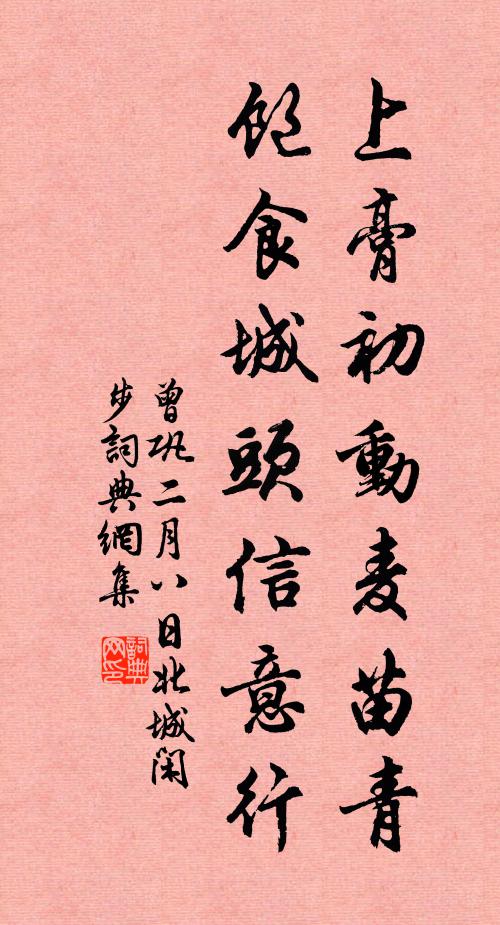 上膏初動麦苗青
飽食城頭信意行
曾巩二月八日北城閑
步詞典網集
詞典
网印